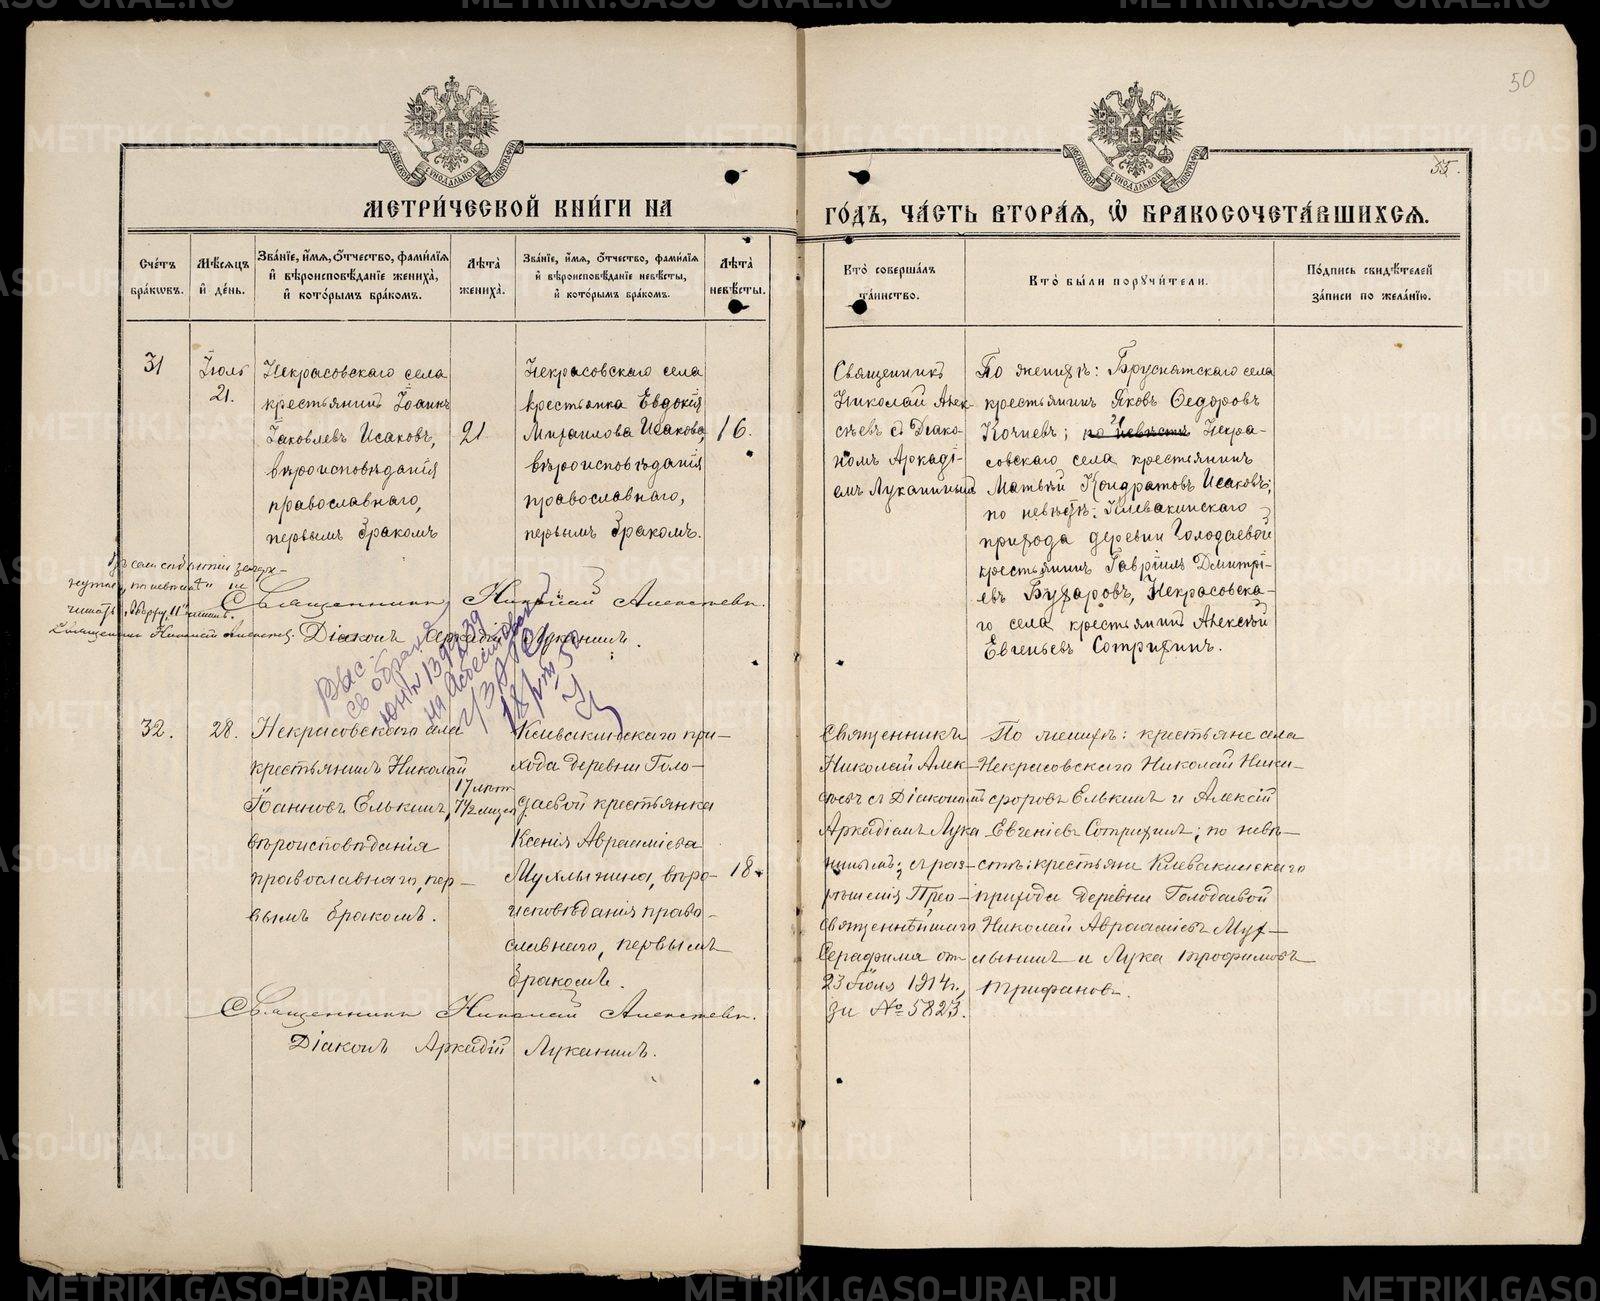 50
55.
МЕТРИ́ЧЕСКОЙ КНИ́ГИ НА
ГО́ДЪ, ЧА́СТЬ ВТОРА́Я, Ѡ҆ БРАКОСОЧЕТА́ВШИХСЯ.
Сче́тъ
бра́кѡвъ.
Мѣ́сяцъ
и҆ де́нь.
Зва́нїе, и҆́мя, ѻ҆́тчество, фами́лїя
и҆ вѣроисповѣ́данїе жениха̀,
и҆ кото́рымъ бра́комъ.
Лѣ́та
жениха̀.
Зва́нїе, и҆́мя, ѻ҆́тчество, фами́лїя
и҆ вѣроисповѣ́данїе невѣ́сты,
и҆ кото́рымъ бра́комъ.
Лѣ́та
невѣ́сты.
Кто̀ соверша́лъ
та́инство.
Кто̀ бы́ли порꙋчи́тели.
По́дпись свидѣ́телей
за́писи по жела́нїю.
31
Іюль
21.
Некрасовскаго села
крестьянинъ Іоаннъ
Іаковлевъ Исаковъ,
вѣроисповѣданія
православнаго,
первымъ бракомъ
21.
Некрасовскаго села
крестьянка Евдокія
Михаилова Исакова,
вѣроисповѣданія
православнаго,
первымъ бракомъ.
16.
Священникъ
Николай Алек-
сѣевъ съ Діако-
номъ Аркаді-
емъ Луканинымъ
По женихѣ: Бруснятскаго села
крестьянинъ Яковъ Ѳедоровъ
Кочневъ; по невѣстѣ Некра-
совскаго села крестьянинъ
Матвѣй Кондратовъ Исаковъ;
по невѣстѣ: Клевакинскаго
прихода деревни Голодаевой
крестьянинъ Гавріилъ Дмитрі-
евъ Бухаровъ, Некрасовска-
го села крестьянинъ Алексѣй
Евгеньевъ Сотрихинъ.
Священникъ Николай Алексѣевъ.
Священникъ Николай Алексѣевъ.
Діаконъ Аркадій Луканинъ.
32.
28.
Некрасовскаго села
крестьянинъ Николай
Іоанновъ Елькинъ,
вѣроисповѣданія
православнаго, пер-
вымъ бракомъ.
17 лѣтъ
7½ мѣсяц
Клевакинскаго при-
хода деревни Голо-
даевой крестьянка
Ксенія Авраамієва
Мухлынина, вѣро-
исповѣданія право-
славнаго, первымъ
бракомъ.
18.
Священникъ
Николай Алек-
сѣевъ съ Діакономъ
Аркадіемъ Лука-
нинымъ; съ раз-
рѣшенія Прео-
священнѣйшаго
Серафима отъ
23 Іюля 1914 г.,
за № 5823.
По женихѣ: крестьяне села
Некрасовскаго Николай Ники-
форовъ Елькинъ и Алексій
Евгеніевъ Сотрихинъ; по невѣ-
стѣ: крестьяне Клевакинскаго
прихода деревни Голодаевой
Николай Авраамієвъ Мух-
лынинъ и Лука Трофимовъ
Трифановъ.
Священникъ Николай Алексѣевъ.
Діаконъ Аркадій Луканинъ.
METRIKI.GASO-URAL.RU